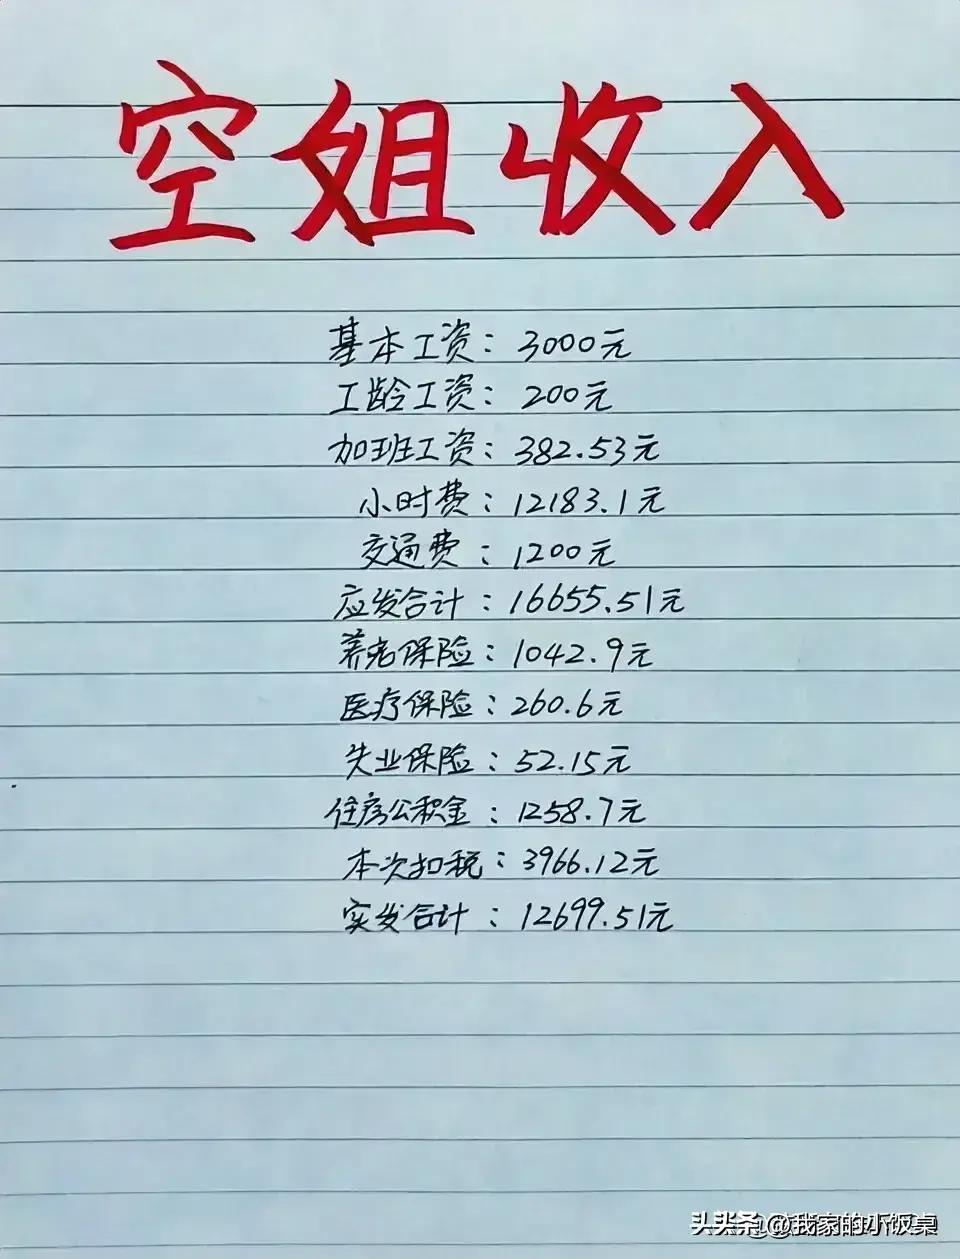 空姐收入
基本工资：3000元
工龄工资：200元
加班工资：382.53元
小时费：12183.1元
交通费：1200元
应发合计：16655.51元
养老保险：1042.9元
医疗保险：260.6元
失业保险：52.15元
住房公积金：1258.7元
本次扣税：3966.12元
实发合计：12699.51元
头条@我家的小饭桌